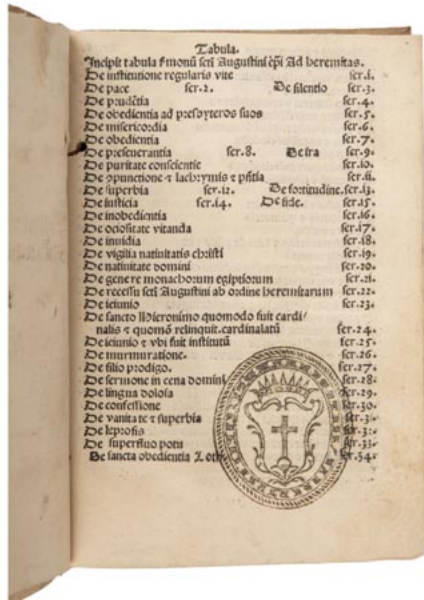 Tabula.
Incipit tabula ẜmonũ scti Augustini ep̃i Ad heremitas.
De institutione regularis vite ser.i.
De pace ser.2. De silentio ser.3.
De prudẽtia ser.4.
De obedientia ad presbyteros suos ser.5.
De misericordia ser.6.
De obedientia ser.7.
De perseuerantia ser.8. De ira ser.9.
De puritate conscientie ser.10.
De ↄpunctione ⁊ lachrymis ⁊ pñtia ser.ii.
De superbia ser.12. De fortitudine.ser.i3.
De iusticia ser.i4. De fide. ser.i5.
De inobedientia ser.i6.
De ociositate vitanda ser.i7.
De inuidia ser.i8.
De vigilia natiuitatis christi ser.19.
De natiuitate domini ser.20.
De genere monachorum egiptiorum ser.2i.
De recessu scti Augustini ab ordine heremitarum ser.22.
De ieiunio ser.23.
De sancto Hieronimo quomodo fuit cardi/
nalis ⁊ quomõ relinquit.cardinalatũ ser.24.
De ieiunio ⁊ vbi fuit institutũ ser.25.
De murmuratione. ser.26.
De filio prodigo. ser.27.
De sermone in cena domini ser.28.
De lingua dolosa ser.29.
De confessione ser.30.
De vanitate ⁊ superbia
De leprosis
De superfluo potu ser.33.
De sancta obedientia ser.34.